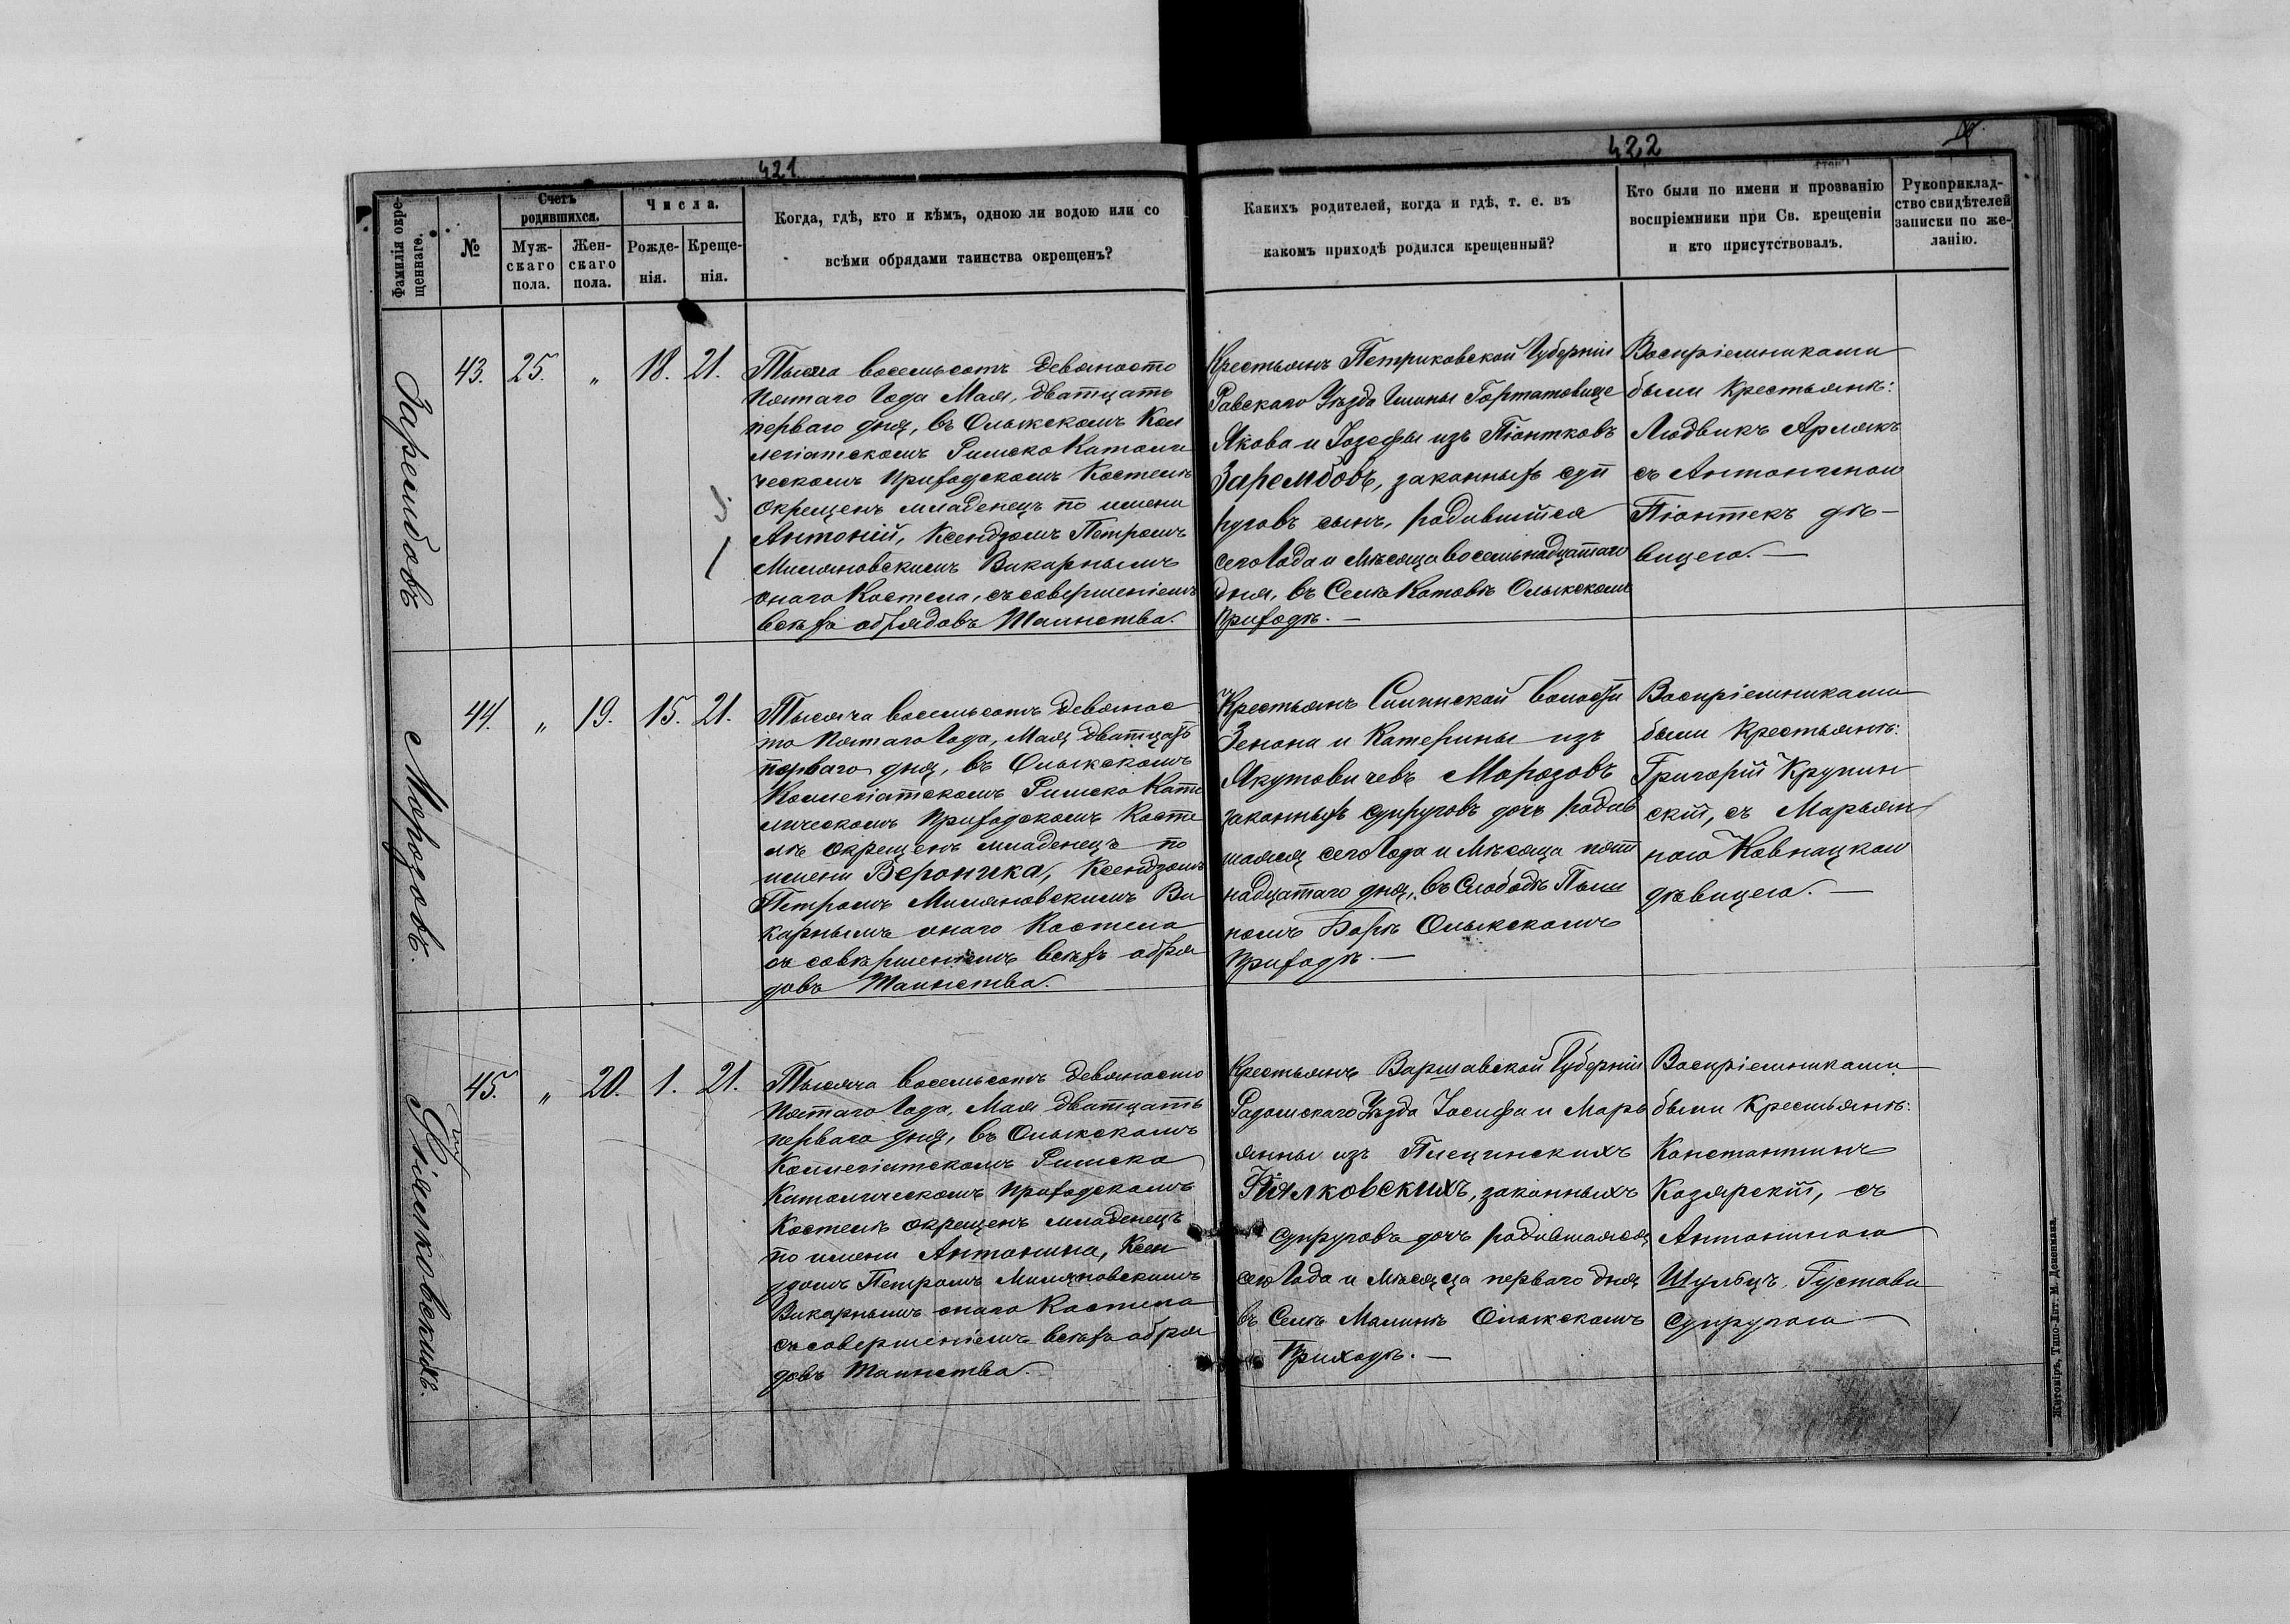 421
Фамилія окре-
щеннаго.
№
Счетъ
родившихся.
Муж-
скаго
пола.
Жен-
скаго
пола.
Числа.
Рожде-
нія.
Креще-
нія.
Когда, гдѣ, кто и кѣмъ, одною ли водою или со
всѣми обрядами таинства окрещенъ?
Зарембовъ
43. 25. „ 18. 21.
Тысяча восемьсотъ девяносто
пятаго года Мая, дватцать
перваго дня, въ Олыкскомъ Кол
легіатскомъ Римско Католи
ческомъ приходскомъ Костелѣ
окрещенъ младенецъ по имени
Антоній, Ксендзомъ Петромъ
Миляновскимъ Викарнымъ
онаго Костела, съ совершеніемъ
всѣхъ обрядовъ Таинства.
Морозовъ.
44. „ 19. 15. 21.
Тысяча восемьсотъ девянос
то пятаго года, Мая дватцать
перваго дня, въ Олыкскомъ
Коллегіатскомъ Римско Като
лическомъ приходскомъ Косте
лѣ окрещенъ младенецъ по
имени Вероника, Ксендзомъ
Петромъ Миляновскимъ Ви
карнымъ онаго Костела
съ совершеніемъ всѣхъ обря
довъ Таинства.
Фіялковскихъ.
45. „ 20. 1. 21.
Тысяча восемьсотъ девяносто
пятаго года, Мая дватцать
перваго дня, въ Олыкскомъ
Коллегіатскомъ Римско
Католическомъ приходскомъ
Костелѣ окрещенъ младенецъ
по имени Антонина, Ксен
дзомъ Петромъ Миляновскимъ
Викарнымъ онаго Костела
съ совершеніемъ всѣхъ обря
довъ Таинства.
422
Какихъ родителей, когда и гдѣ, т. е. въ
какомъ приходѣ родился крещенный?
Кто были по имени и прозванію
воспріемники при Св. крещеніи
и кто присутствовалъ.
Рукоприклад-
ство свидѣтелей
записки по же-
ланію.
Крестьянъ Петриковской Губерніи
Равскаго Уѣзда Гмины Гортатовице
Якова и Іозефы изъ Піонтковъ
Зарембовъ, законныхъ суп
руговъ сынъ, родившійся
сего года и мѣсяца восемьнадцатаго
дня, въ Селѣ Котовѣ Олыкскомъ
приходѣ. —
Воспріемниками
были Крестьянѣ:
Людвикъ Армякъ
съ Антониною
Піонтекъ дѣ-
вицею. —
Крестьянъ Силинской волости
Зенона и Катерины изъ
Якутовичевъ Морозовъ
законныхъ супруговъ дочь родив
шаяся сего года и мѣсяца пят
надцатаго дня, въ Слободѣ Пыш
номъ Борѣ Олыкскомъ
приходѣ. —
Воспріемниками
были Крестьянѣ:
Григорій Крупин
скій, съ Марьян
ною Ковнацкою
дѣвицею. —
Крестьянъ Варшавской Губерніи
Радомскаго Уѣзда Іосифа и Марь
янны изъ Плецинскихъ
Фіялковскихъ, законныхъ
супруговъ дочь родившаяся
сего года и мѣсяца перваго дня
въ Селѣ Малинѣ Олыкскомъ
Приходѣ. —
Воспріемниками
были Крестьянѣ:
Константинъ
Козярскій, съ
Антониною
Шульцъ, Густава
супругою
Житоміръ, Типо-Лит. М. Дененмана.